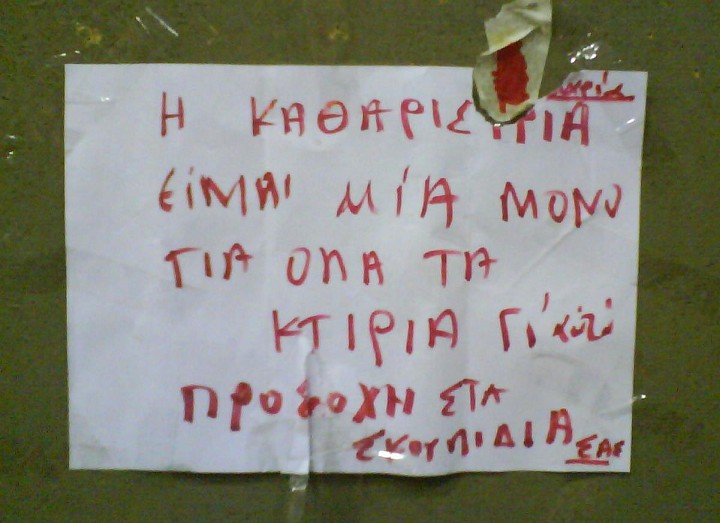 Η ΚΑΘΑΡΙΣΤΡΙΑ
ΕίΜΑΙ ΜίΑ ΜΟΝΟ
ΓΙΑ ΟΠΑ ΤΑ
ΚΤΙΡΙΑ Γί αυτό
ΠΡΟΣΟΧΗ ΣΤΑ
ΣΚΟΥΠΙΔΙΑ ΣΑΣ